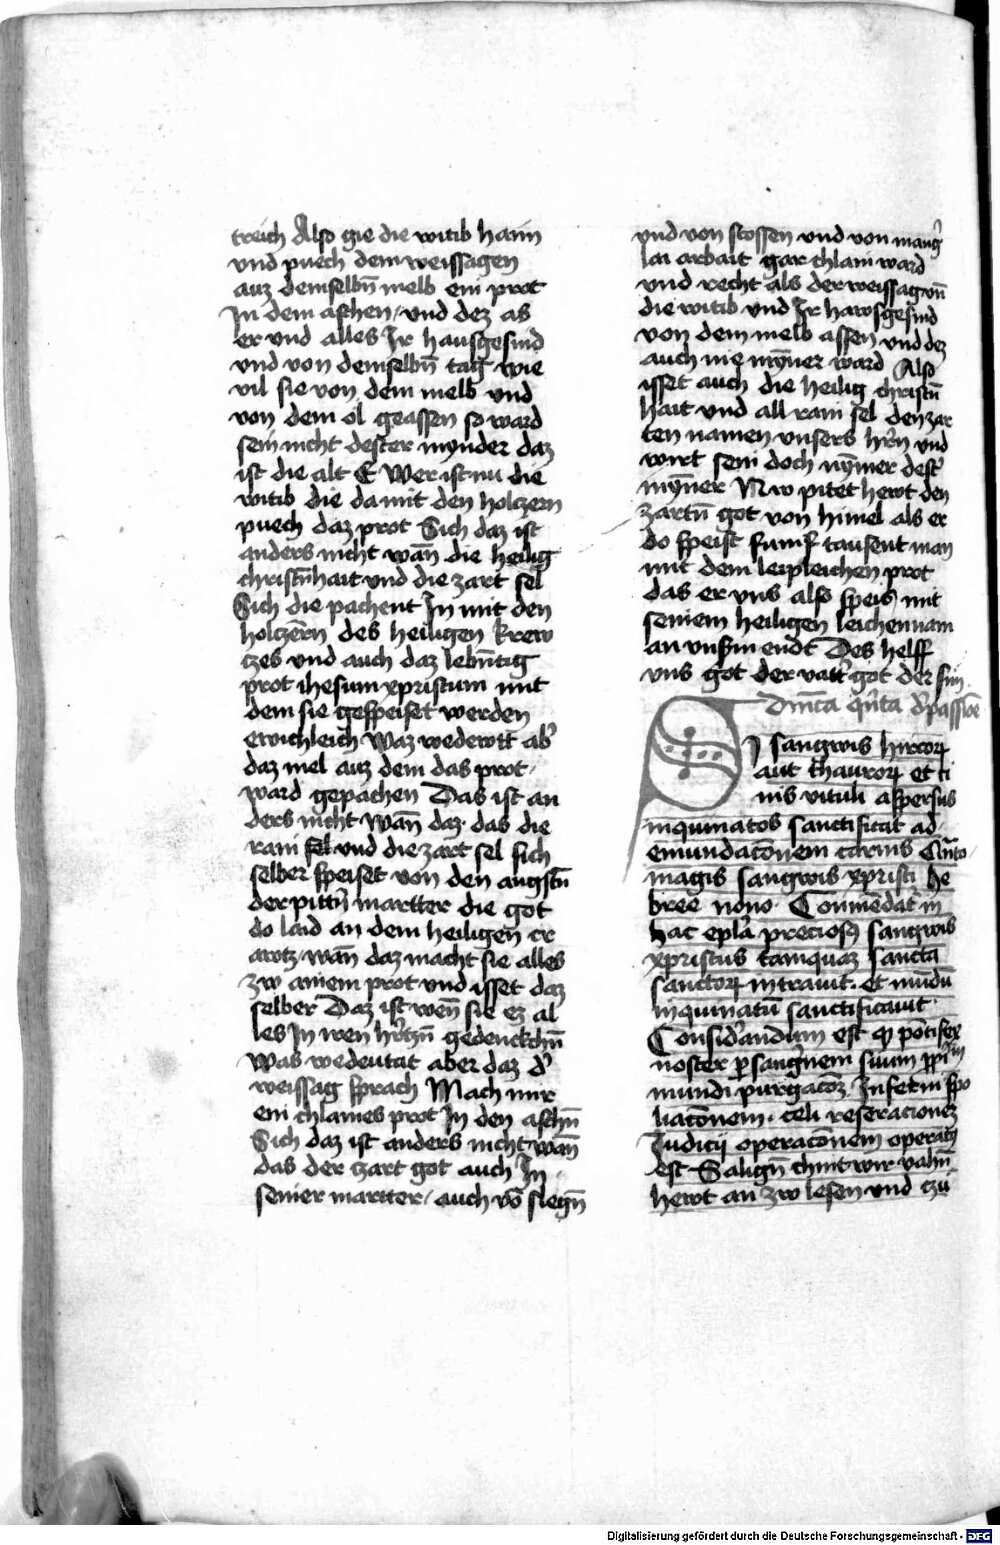 treich Also gie die witib haim
vnd puech dem weissagen
auz demselbn̄ melb ein prot
In dem aschen / vnd dez as
er vnd alles Ir hausgesind
vnd von demselbn̄ tag wie
vil sie von dem melb vnd
von dem ol geassen so ward
sein nicht dester mynder daz
ist die alt E Wer ist nu die
witib die da mit den holczern
puech daz prot Sich daz ist
anders nicht wan̄ die heilig
christn̄hait vnd die zart sel
Sich die pachent In mit den
holczern des heiligen krew
czes vnd auch daz lebn̄tig
prot ihesum xpristum mit
dem sie gespeiset werden
ewichleich Waz wedewtt ab̾
daz mel auz dem das prot
ward gepachen Das ist an
ders nicht wan̄ daz das die
rain sel vnd die zart sel sich
selber speiset von den angstn̄
der pittn̄ martter die got
do laid an dem heiligen cr
awtz wan̄ daz macht sie alles
zw ainem prot vnd isset daz
selber Daz ist wen̄ sie ez al
les In iren hr̄tzn̄ gedenckchn̄
Was wedeutat aber daz d̾
weissag sprach Mach mir
ein chlaines prot In den aschn̄
Sich daz ist anders nicht wan̄
das der zart got auch In
seiner martter / auch vō slegn̄
vnd von stossen vnd von mang̾
lai arbait gar chlain ward
vnd recht als der weissag vn̄
die witib vnd Ir hawsgesind
von dem melb assen vnd dez
auch nie myn̄er ward Also
isset auch die heilig christn̄
hait vnd all rain sel den zar
ten namen vnsers hr̄n vnd
wirt sein doch nym̄er dest̾
myn̄er Nw pitet hewt den
zartn̄ got von himel als er
do speist fumf tausent man
mit dem leipleichen prot
das er vns also speis mit
seinem heiligen leichennam
an vnserm endt Des helff
vns got der vatt̾ got der sun
Dn̄ica qn̄ta d̾ passiōe
Si sangwis hircoꝝ
aut thauroꝝ et ci
nis vituli aspersus
inquinatos sanctificat ad
emundacōnem carnis Qn̄to
magis sangwis xpristi he
bree nono Conmendat̾ in
hac epl̄a preciosꝰ sangwis
xpristus tamquaz sancta
sanctoꝝ intrauit et mūdū
inquinatū sanctificauit
Consid̾andum est ꝙ pōtifex
noster ꝑ sangwnem suum ꝓpriū
mundi purgacōz Inferni spo
liacōnem celi reseracionez
Iudicij operacōnem operatꝰ
est Salign̄ chint wir vahn̄
hewt an zw lesen vnd czu
Digitalisierung gefördert durch die Deutsche Forschungsgemeinschaft - DFG